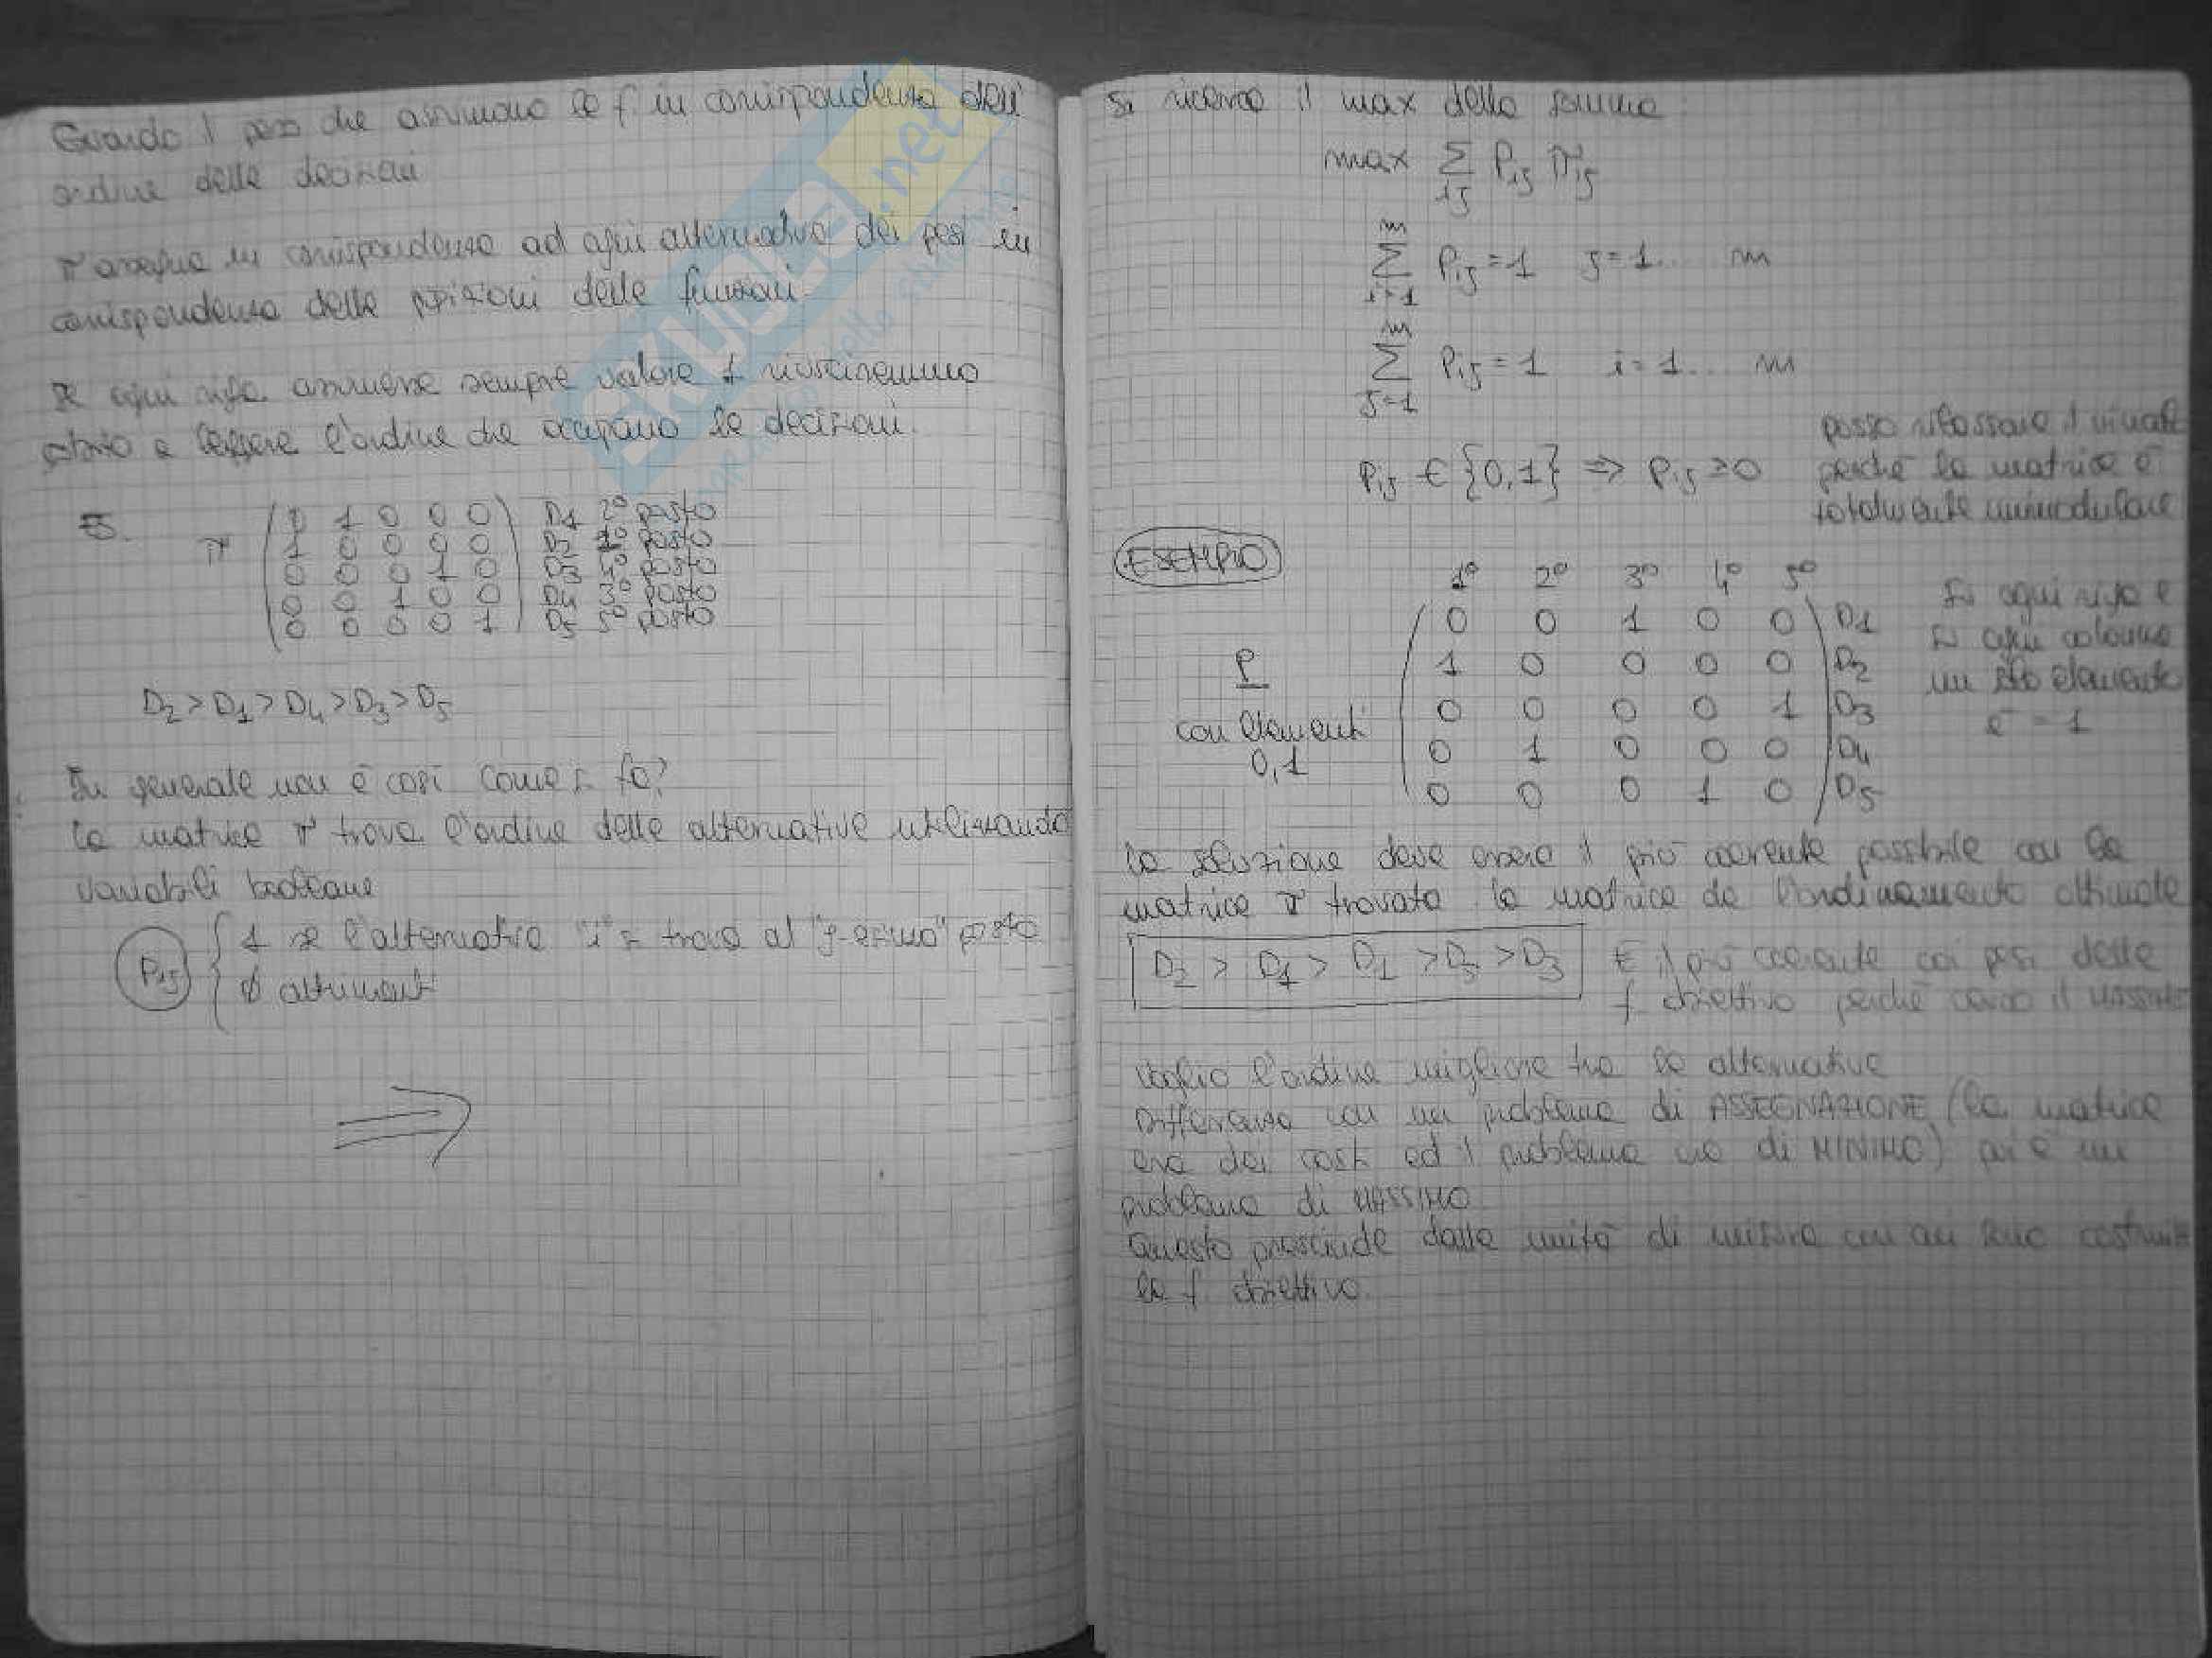 Guardo il peso che assumono le f in corrispondenza dell'
ordine delle decisioni
π assegna in corrispondenza ad ogni alternativa dei pesi in
corrispondenza delle posizioni delle funzioni.
Se ogni riga assumesse sempre valore 1 riusciremmo
subito a leggere l'ordine che occupano le decisioni.
ES.
π ( 0 1 0 0 0 ) D1 2° posto
1 0 0 0 0 D2 1° posto
0 0 0 1 0 D3 4° posto
0 0 1 0 0 D4 3° posto
0 0 0 0 1 D5 5° posto
D2 > D1 > D4 > D3 > D5
In generale non è così come si fa?
la matrice π trova l'ordine delle alternative utilizzando
variabili booleane
Pij { 1 se l'alternativa "i" si trova al "j-esimo" posto
0 altrimenti
⇒
Si ricerca il max della somma:
max Σij Pij πij
m Σ i=1 Pij = 1 j = 1... m
m Σ j=1 Pij = 1 i = 1... m
Pij ∈ {0,1} ⇒ Pij ≥ 0
posso rilassare il
perché la matrice è
totalmente unimodulare
ESEMPIO
1° 2° 3° 4° 5°
P
con elementi
0,1
( 0 0 1 0 0 ) D1
1 0 0 0 0 D2
0 0 0 0 1 D3
0 1 0 0 0 D4
0 0 0 1 0 D5
In ogni riga e
in ogni colonna
un solo elemento
è = 1
la soluzione deve essere il più coerente possibile con la
matrice π trovata la matrice da l'ordinamento ottimale
D2 > D4 > D1 > D5 > D3
È il più coerente coi pesi delle
f obiettivo perché cerco il massimo
Voglio l'ordine migliore tra le alternative
Differenza con un problema di ASSEGNAZIONE (la matrice
era dei costi ed il problema era di MINIMO) qui è un
problema di MASSIMO
Questo prescinde dalle unità di misura con cui sono costruite
le f. obiettivo.
SKUOLA.net